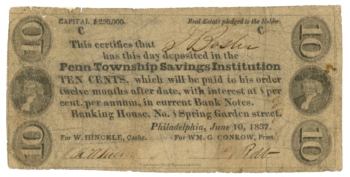 CAPITAL $250,000. Real Estate pledged to the Holder.
C C
10 10
This certifies that
has this day deposited in the
Penn Township Savings Institution
TEN CENTS, which will be paid to his order
twelve months after date, with interest at per
cent. per annum, in current Bank Notes.
Banking House, No. Spring Garden street.
Philadelphia, June 10, 1837.
For W. HINCKLE, Cashr. For WM. G. CONROW, Prest.
10 10